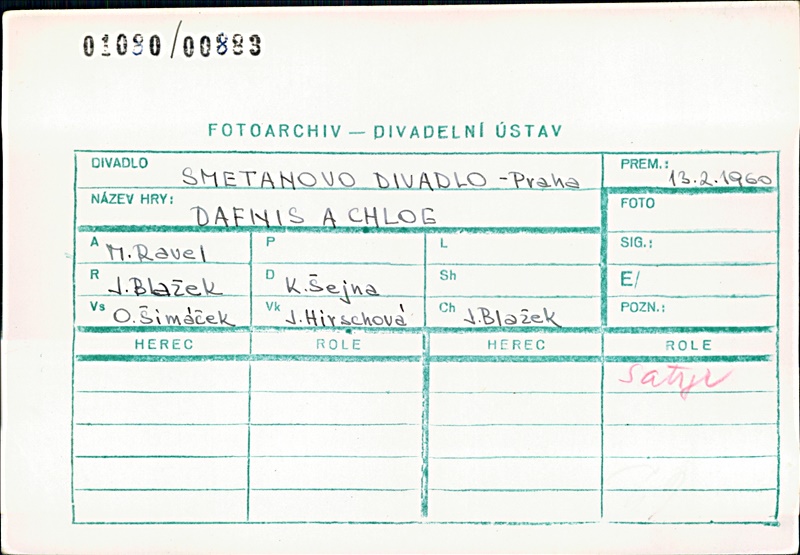 01090/00883
FOTOARCHIV — DIVADELNÍ ÚSTAV
DIVADLO SMETANOVO DIVADLO - Praha PREM.: 13.2.1960
NÁZEV HRY: DAFNIS A CHLOE FOTO
A M. Ravel P L SIG.:
R J. Blažek D K. Šejna Sh E/
Vs O. Šimáček Vk J. Hirschová Ch J. Blažek POZN.:
HEREC ROLE HEREC ROLE
Satyr